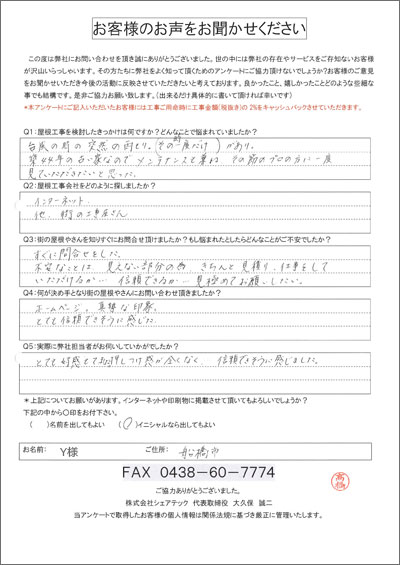 お客様のお声をお聞かせください
この度は弊社にお問い合わせを頂き誠にありがとうございました。世の中には弊社の存在やサービスをご存知ないお客様
が沢山いらっしゃいます。その方たちに弊社をよく知って頂くためのアンケートにご協力頂けないでしょうか?お客様のご意見
をお聞かせいただき今後の活動に反映させていただきたいと考えております。良かったこと、嬉しかったことどのような些細な
事でも結構です。是非ご協力お願い致します。(出来るだけ具体的に書いて頂ければ幸いです)
*本アンケートにご記入いただいたお客様には工事ご用命時に工事金額(税抜き)の2%をキャッシュバックさせていただきます。
Q1:屋根工事を検討したきっかけは何ですか?どんなことで悩まれていましたか?
台風の時の突然の雨もり。(その時一度だけ)があり。
築44年の古い家なのでメンテナンスも兼ね その筋のプロの方に一度
見ていただきたいと思った。
Q2:屋根工事会社をどのように探しましたか?
インターネット
他、街の工事屋さん
Q3:街の屋根やさんを知りすぐにお問合せ頂けましたか?もし悩まれたとしたらどんなことがご不安でしたか?
すぐに問合せをした。
不安なことは、見えない部分の為、きちんと見積り、仕事をして
いただけるか… 信頼できるか… 見極めてお願いしたい。
Q4:何が決め手となり街の屋根やさんにお問い合わせ頂きましたか?
ホームページ。真摯な印象。
とても信頼できそうに感じた。
Q5:実際に弊社担当者がお伺いしていかがでしたか?
とても好感もてお押しつけ感が全くなく、信頼できそうに感じました。
*上記についてお願いがあります。インターネットや印刷物に掲載させて頂いてもよろしいでしょうか?
下記の中から〇印をお付下さい。
( )名前を出してもよい (〇)イニシャルなら出してもよい
お名前: Y様 ご住所: 船橋市
FAX 0438-60-7774
高橋
ご協力ありがとうございました。
株式会社シェアテック 代表取締役 大久保 誠二
当アンケートで取得したお客様の個人情報は関係法規に基づき厳正に管理いたします。